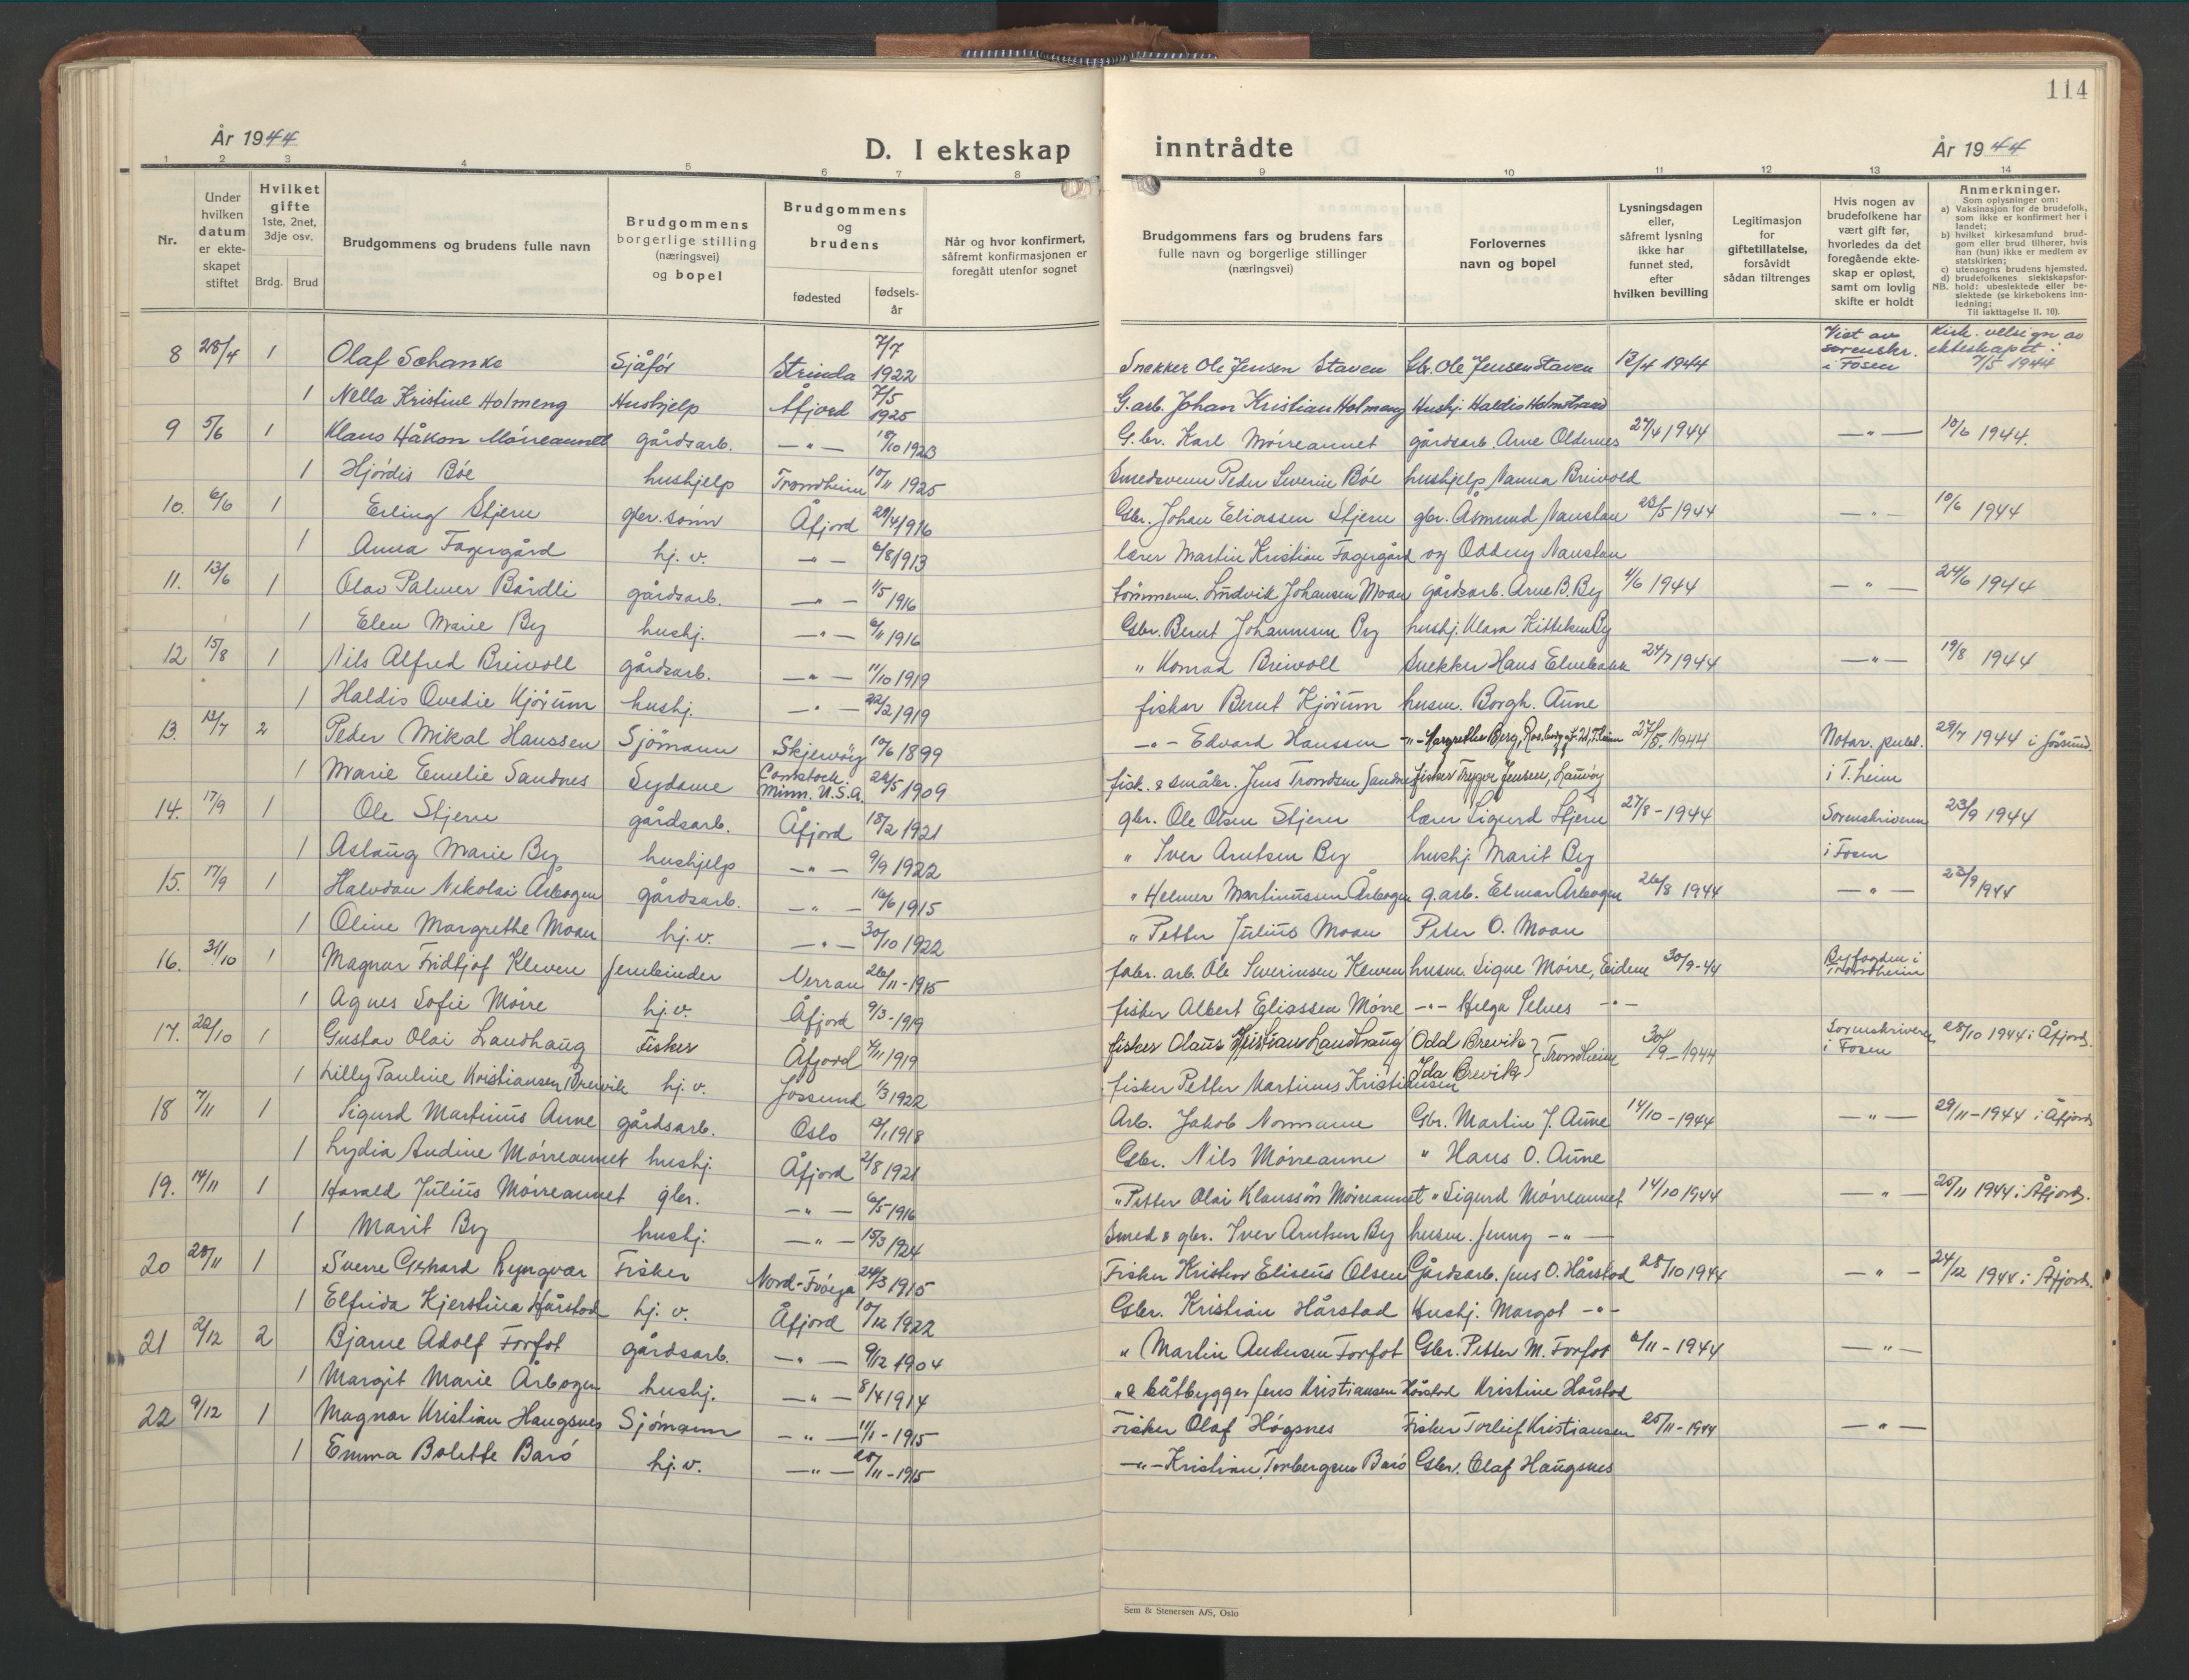 114
År 1944
D. I ekteskap inntrådte
År 1944
1 2 3 4 5 6 7 8 9 10 11 12 13 14
Nr.
Under hvilken datum er ekteskapet stiftet
Hvilket gifte 1ste, 2net, 3dje osv.
Brdg. Brud
Brudgommens og brudens fulle navn
Brudgommens borgerlige stilling (næringsvei) og bopel
Brudgommens og brudens
fødested
fødselsår
Når og hvor konfirmert, såfremt konfirmasjonen er foregått utenfor sognet
Brudgommens fars og brudens fars fulle navn og borgerlige stillinger (næringsvei)
Forlovernes navn og bopel
Lysningsdagen eller, såfremt lysning ikke har funnet sted, efter hvilken bevilling
Legitimasjon for giftetillatelse, forsåvidt sådan tiltrenges
Hvis nogen av brudefolkene har vært gift før, hvorledes da det foregående ekteskap er opløst, samt om lovlig skifte er holdt
Anmerkninger.
Som oplysninger om:
a) Vaksinasjon for de brudefolk, som ikke er konfirmert her i landet;
b) hvilket kirkesamfund brudgom eller brud tilhører, hvis han (hun) ikke er medlem av statskirken;
c) utensogns brudens hjemsted.
d) brudefolkenes slektskapsforhold: ubeslektede eller beslektede (se kirkebokens innledning;
NB.
Til iakttagelse II. 10).
8 28/4 1 Olaf Schanke Sjåfør Strinda 7/7 1922 Snekker Ole Jensen Staven Gbr. Ole Jensen Staven 13/4 1944 Viet av sorenskr. i Fosen Kirk. velsign av ekteskapet: 7/5 1944
1 Nella Kristine Holmeng Hushjelp Åfjord 7/5 1925 G.arb. Johan Kristian Holmeng Hushj. Haldis Holmstrand
9 5/6 1 Klaus Håkon Mørreaunet gårdsarb. —"— 18/10 1923 G.br. Karl Mørreaunet gårdsarb. Arne Oldernes 27/4 1944 —"— 10/6 1944.
1 Hjørdis Bøe hushjelp Trondheim 10/11 1925 Smedsvenn Peder Severin Bøe hushjelp Nanna Breivold
10. 6/6 1 Erling Stjern gbr.sønn Åfjord 29/4 1916 Gbr. Johan Eliassen Stjern gbr. Åsmund Naustan 23/5 1944 —"— 10/6 1944
1 Anna Fagergård hj. v. —"— 6/8 1913 lærer Martin Kristian Fagergård og Oddny Naustan
11. 13/6 1 Olav Palmer Bårdli gårdsarb. —"— 1/5 1916 tømmerm. Ludvik Johansen Moan gårdsarb. Arne B. By 4/6 1944 —"— 24/6 1944
1 Elen Marie By hushj. —"— 6/11 1916 Gbr. Bernt Johannesen By hushj. Klara By
12 15/8 1 Nils Alfred Breivoll gårdsarb. —"— 11/10 1919 " Konrad Breivoll Snekker Hans Elvebakk 24/7 1944 —"— 19/8 1944
1 Haldis Ovedie Kjørum hushj. —"— 22/2 1919 fisker Bernt Kjørum husm. Borgh. Aune
13. 13/7 2 Peder Mikal Hanssen Sjømann Skjervøy 10/6 1899 —"— Edvard Hanssen —"— Margrethe Berg, T.heim 27/5. 1944 Notar. publ. i T.heim 29/7 1944 i Jøssund.
1 Marie Emelie Sandnes Sydame Comstock Minn. U.S.A. 22/5 1909 fisk. & småbr. Jens Trondsen Sandnes fisker Trygve Jensen, Lauvøy
14. 17/9 1 Ole Stjern gårdsarb. Åfjord 18/2 1921 gbr. Ole Olsen Stjern lærer Sigurd Stjern 27/8 - 1944 Sorenskriveren i Fosen 23/9 1944
1 Aslaug Marie By hushjelp —"— 9/9 1922 " Iver Arntsen By hushj. Marit By
15. 17/9 1 Halvdan Nikolai Årbogen gårdsarb. —"— 16/6 1915 " Helmer Martinussen Årbogen g.arb. Elmar Årbogen 26/8 1944 —"— 23/9 1944
1 Oline Margrethe Moan hj. v. —"— 30/10 1922 " Petter Julius Moan Peter O. Moan
16. 31/10 1 Magnar Fridtjof Kleven Jernbinder Verran 26/11 - 1915 fabr. arb. Ole Severinsen Kleven husm. Signe Mørre, Eidem 30/9-44 Byfogden i Trondheim
1 Agnes Sofie Mørre hj. v. Åfjord 9/3 - 1919 fisker Albert Eliassen Mørre —"— Helga Selnes —"—
17. 22/10 1 Gustav Olai Landhaug Fisker Åfjord 4/11 1919 fisker Olaus Kristian Landhaug Odd Brevik } Trondheim 30/9 - 1944 Sorenskriveren i Fosen 28/10 1944 i Åfjord.
1 Lilly Pauline Kristiansen Brevik hj. v. Jøssund 1/3 1922 fisker Petter Martinus Kristiansen Ida Brevik
18 7/11 1 Sigurd Martinus Aune gårdsarb. Oslo 12/1 1918 Arb. Jakob Normann Gbr. Martin J. Aune 14/10 - 1944 —"— 29/11 - 1944 i Åfjord
1 Lydia Andine Mørreaunet hushj. Åfjord 2/8 1921 Gbr. Nils Mørreaune " Hans O. Aune
19. 14/11 1 Harald Julius Mørreaunet gbr. —"— 6/5 1916 " Petter Olai Klaussøn Mørreaunet " Sigurd Mørreaunet 14/10 1944 —"— 25/11 1944 i Åfjord.
1 Marit By hushj. —"— 15/3 1924 Smed & gbr. Iver Arntsen By husm. Jenny —"—
20 28/11 1 Sverre Gerhard Lyngvær Fisker Nord-Frøya 24/3 1915 Fisker Kristen Eliseus Olsen Gårdsarb. Jens O. Hårstad 28/10 1944 —"— 24/12 1944 i Åfjord.
1 Elfrida Kjerstina Hårstad hj. v. Åfjord 10/12 1922 Gbr. Kristian Hårstad Hushj. Margot —"—
21 2/12 2 Bjarne Adolf Forfot gårdsarb. —"— 9/12 1904 " Martin Andersen Forfot Gbr. Petter M. Forfot 6/11 - 1944 —"—
1 Margit Marie Årbogen hushj. —"— 8/4 1914 " & båtbygger Jens Kristiansen Hårstad Kristine Hårstad
22 9/12 1 Magnar Kristian Haugsnes Sjømann —"— 11/1 - 1915 Fisker Olaf Høgsnes Fisker Torleif Kristiansen 25/11 - 1944 —"—
1 Emma Bolette Barø hj. v. —"— 28/11 - 1915 —"— Kristian Torbergsen Barø Gbr. Olaf Haugsnes
Sem & Stenersen A/S, Oslo